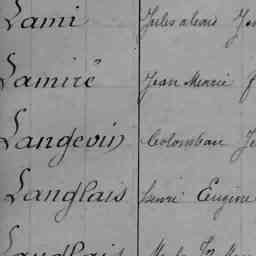 Lami Jules alexis
Lamiré Jean Marie
Langevin Colomban
Langlais henri Eugène
Langlais